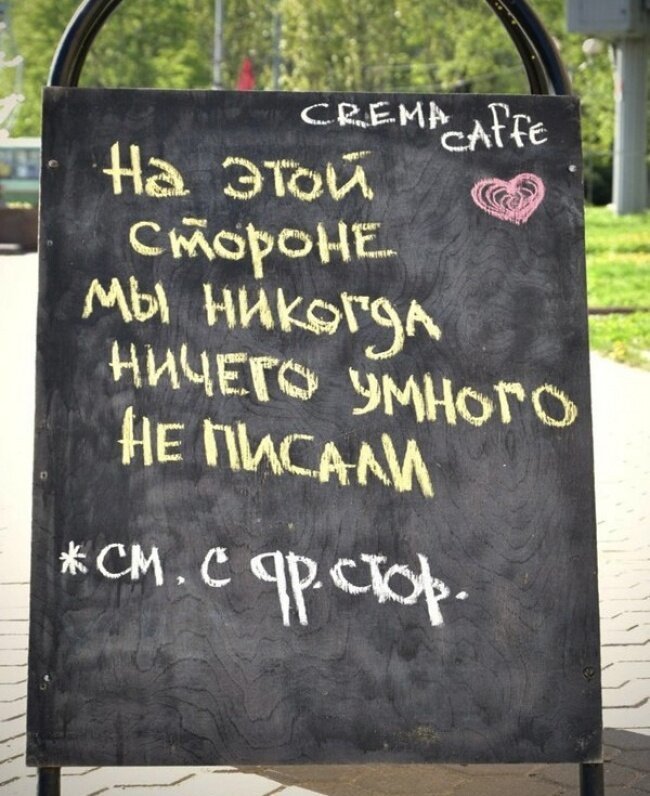 CREMA
CAFFE
На этой
стороне
мы никогда
ничего умного
не писали
*см. с др. стор.